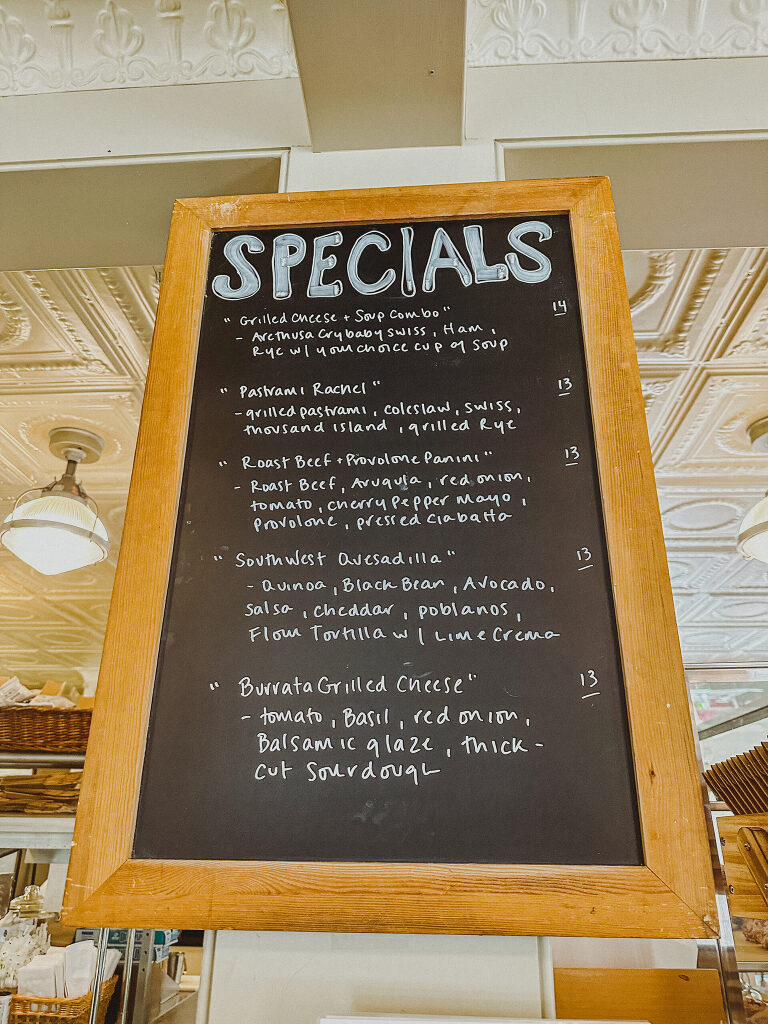 SPECIALS
"Grilled Cheese + Soup Combo" 14
- Arethusa Crybaby Swiss, Ham,
Rye w/ your choice cup of soup
"Pastrami Rachel" 13
- grilled pastrami, coleslaw, swiss,
thousand island, grilled Rye
"Roast Beef + Provolone Panini" 13
- Roast Beef, Arugula, red onion,
tomato, cherry Pepper Mayo,
Provolone, pressed Ciabatta
"Southwest Quesadilla" 13
- Quinoa, Black Bean, Avocado,
Salsa, cheddar, poblanos,
Flour Tortilla w/ Lime Crema
"Burrata Grilled Cheese" 13
- tomato, Basil, red onion,
Balsamic glaze, thick-
cut Sourdough